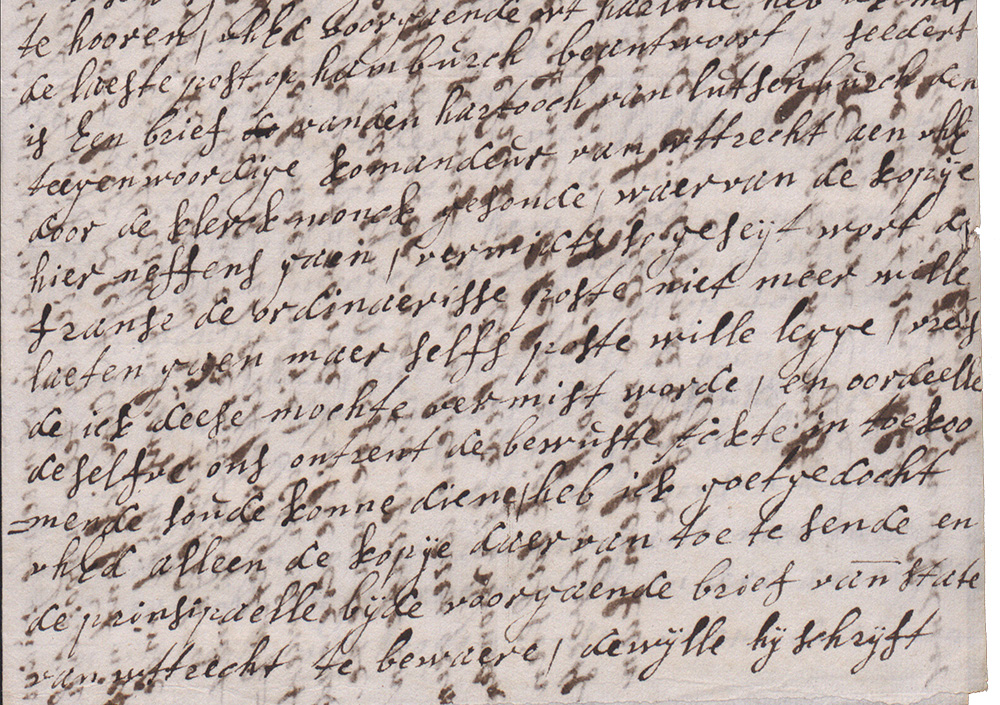 te hooren, vhEd voorgaende wt haerlone heb ick met
de laeste post op hamburch beantwoort, seedert
is Een brief vanden hartooch van lutsenburch den
teegenwoordige komandeur van wttrecht aen vhE
door de klerck monck gesonde, waervan de kopije
hier neffens gaen, vermicts so geseijt wort de
franse de ordinaerisse poste niet meer wille
laeten gaen maer selfs poste wille legge, vrees
de ick deese mochte vermist worde, en oordeelle
deselfve ons ontrent de bewuste sckte in toekoo
=mende soude konne diene, heb ick goetgedocht
vhEd alleen de kopije daervan toe te sende en
de prinsipaelle bijde voorgaende brief van state
van wttrecht te bewaere, dewijlle hij schrijft